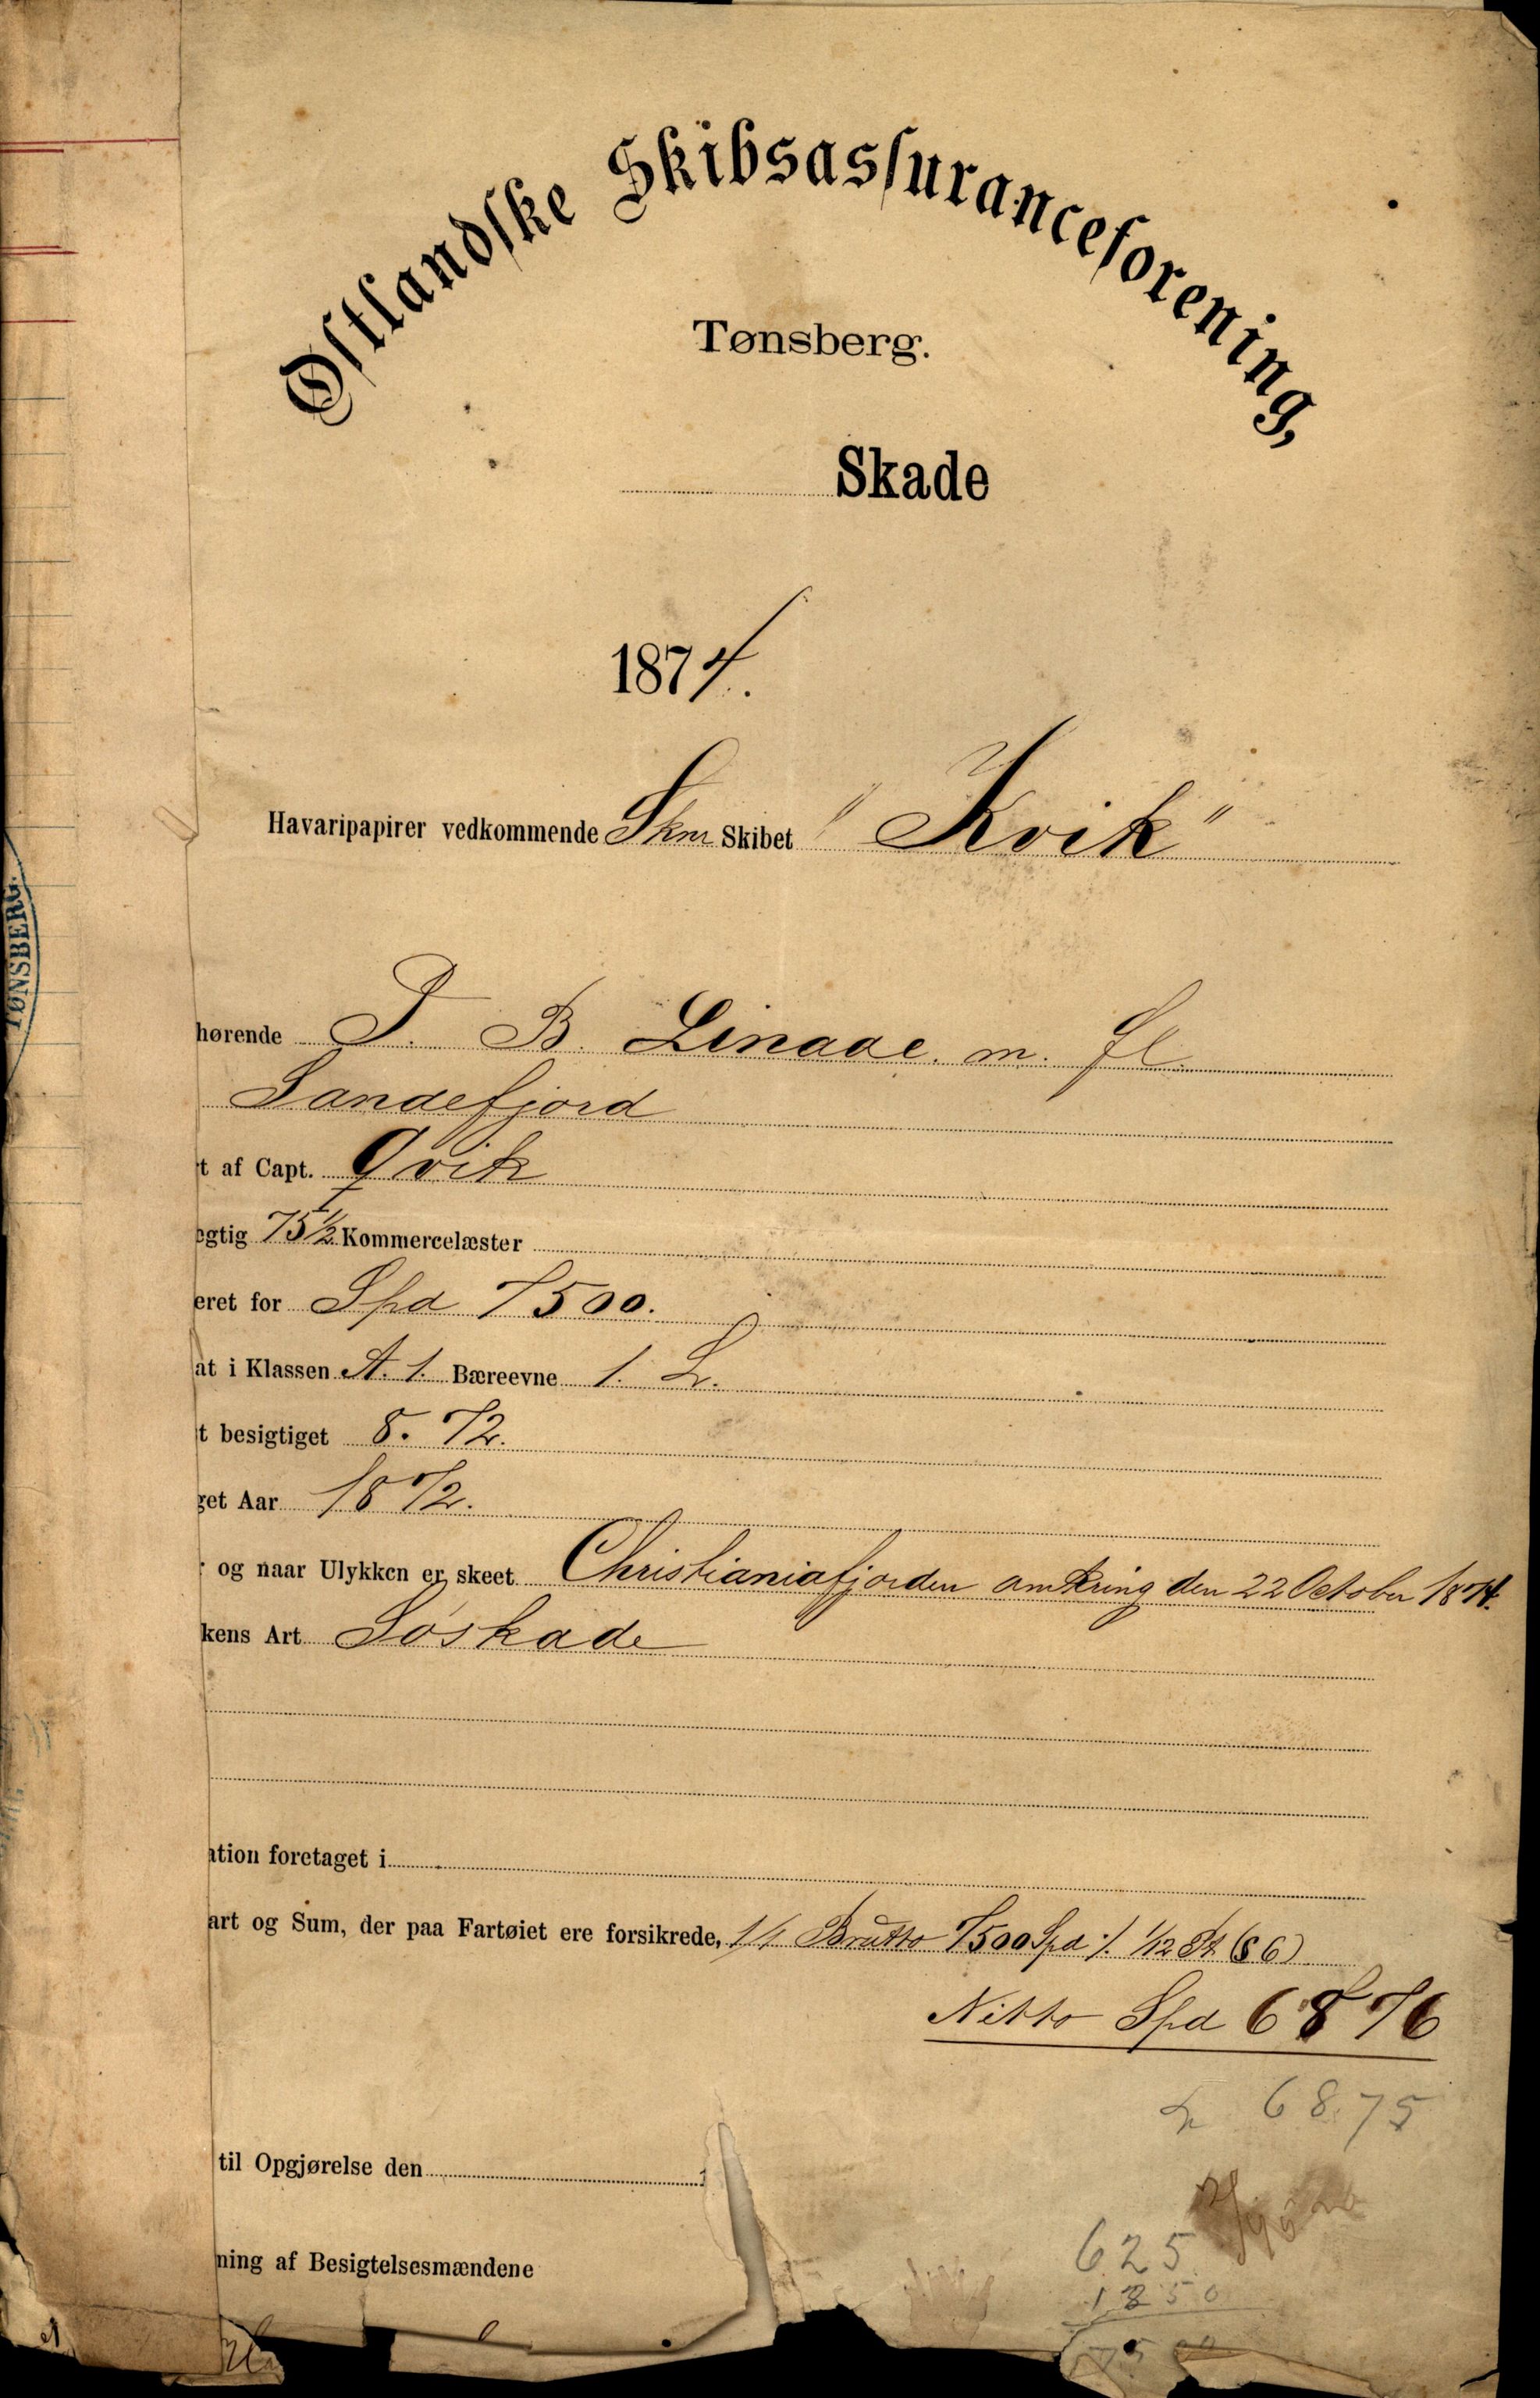 Østlandske Skibsassuranceforening,
Tønsberg.
Skade
1874.
Havaripapirer vedkommende Skn Skibet "Kvik"
TØNSBERG.
hørende P. B. Linaae. m. fl.
Sandefjord
t af Capt. Qvik
egtig 75 1/2 Kommercelæster
eret for Spd 7500.
at i Klassen A. 1. Bæreevne 1. L.
t besigtiget 8. 72.
get Aar 1872.
og naar Ulykken er skeet Christianiafjorden omkring den 22 October 1874.
kens Art Søskade
ation foretaget i
art og Sum, der paa Fartøiet ere forsikrede, 1/1 Brutto 7500 Spd ./. 1/12 (§ 6)
Netto Spd 6876
6875
til Opgjørelse den
625
1250
ning af Besigtelsesmændene